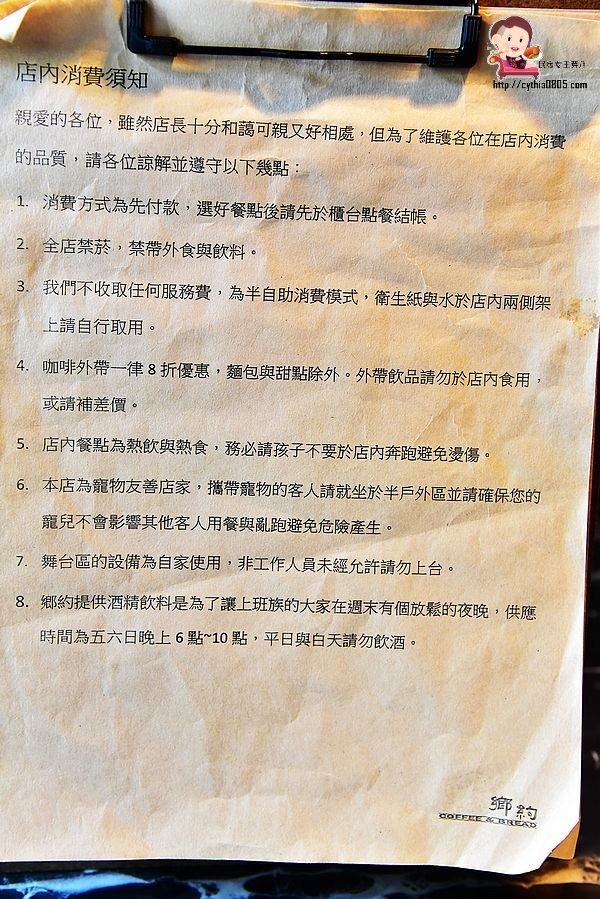 民宿女王芽月
http://cythia0805.com
店內消費須知
親愛的各位，雖然店長十分和藹可親又好相處，但為了維護各位在店內消費
的品質，請各位諒解並遵守以下幾點：
1. 消費方式為先付款，選好餐點後請先於櫃台點餐結帳。
2. 全店禁菸，禁帶外食與飲料。
3. 我們不收取任何服務費，為半自助消費模式，衛生紙與水於店內兩側架
上請自行取用。
4. 咖啡外帶一律 8 折優惠，麵包與甜點除外。外帶飲品請勿於店內食用，
或請補差價。
5. 店內餐點為熱飲與熱食，務必請孩子不要於店內奔跑避免燙傷。
6. 本店為寵物友善店家，攜帶寵物的客人請就坐於半戶外區並請確保您的
寵兒不會影響其他客人用餐與亂跑避免危險產生。
7. 舞台區的設備為自家使用，非工作人員未經允許請勿上台。
8. 鄉約提供酒精飲料是為了讓上班族的大家在週末有個放鬆的夜晚，供應
時間為五六日晚上 6 點~10 點，平日與白天請勿飲酒。
鄉約
COFFEE & BREAD